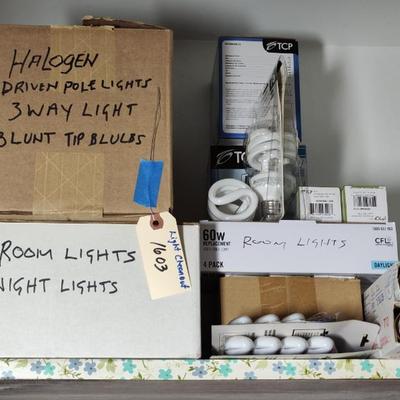 HALOGEN
DRIVEN POLE LIGHTS
3 WAY LIGHT
BLUNT TIP BLULBS
TCP
TCP
ROOM LIGHTS
NIGHT LIGHTS
Light Cleanout
1603
60W
REPLACEMENT
4 PACK
ROOM LIGHTS
CFL
DAYLIGHT